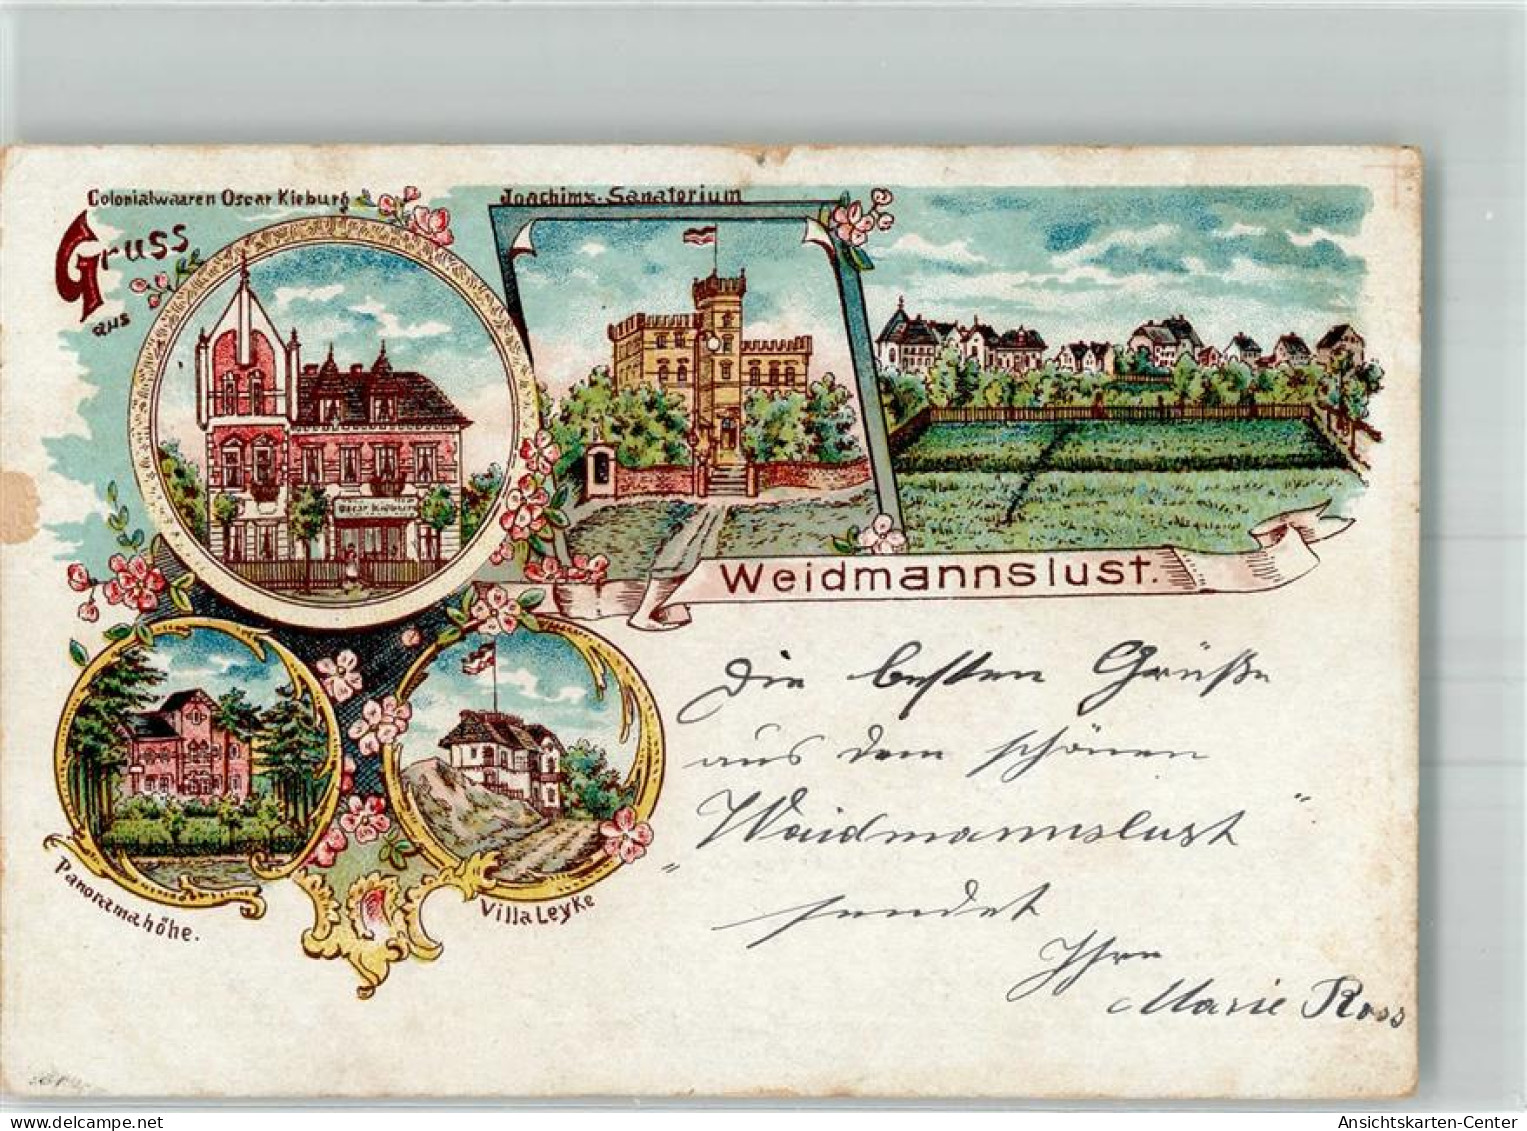 Colonialwaaren Oscar Kieburg
Joachims-Sanatorium
Gruss
aus
Oscar Kieburg
Weidmannslust.
Die besten Grüße
aus dem schönen
„Weidmannslust“
sendet
Ihre
Marie Ross
Panoramahöhe.
Villa Leyke
Ansichtskarten-Center